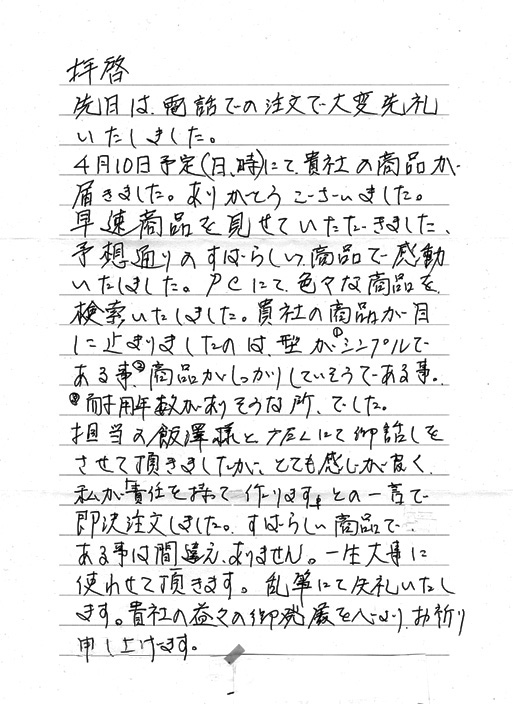 拝啓
先日は、電話での注文で大変失礼
いたしました。
4月10日予定(日、時)にて、貴社の商品が、
届きました。ありがとうございました。
早速商品を見せていただきました、
予想通りのすばらしい、商品で感動
いたしました。PCにて、色々な商品を、
検索いたしました。貴社の商品が目
に止まりましたのは、型が①シンプルで
ある事、②商品がしっかりしていそうである事。
③耐用年数がありそうな所、でした。
担当の飯澤様と、TELにて御話しを
させて頂きましたが、とても感じが良く、
私が「責任を持って作ります。」との一言で
即決注文しました。すばらしい商品で、
ある事は間違えありません。一生大事に
使わせて頂きます。乱筆にて失礼いたし
ます。貴社の益々の御発展を心より、お祈り
申し上げます。